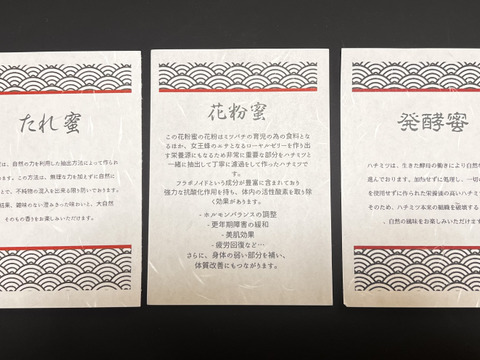 たれ蜜
は、自然の力を利用した抽出方法によって作られ
す。この方法は、無理な力を加えずに自然に
とで、不純物の混入を出来る限り防いでおります。
結果、雑味のない澄みきった味わいと、大自然
そのもの香りをお楽しみいただけます。
花粉蜜
この花粉蜜の花粉はミツバチの育児の為の食料とな
るほか、女王蜂のエサとなるローヤルゼリーを作り出
す栄養源にもなるため非常に重要な部分をハチミツと
一緒に抽出して丁寧に濾過をして作ったハチミツで
す。
フラボノイドという成分が豊富に含まれており
強力な抗酸化作用を持ち、体内の活性酸素を取り除
く効果があります。
- ホルモンバランスの調整
- 更年期障害の緩和
- 美肌効果
- 疲労回復など…
さらに、身体の弱い部分を補い、
体質改善にもつながります。
発酵蜜
ハチミツは、生きた酵母の働きにより自然
進んでおります。加熱せずに処理し、一切の
を使用せずに作られた栄養価の高いハチミツ
そのため、ハチミツ本来の組織を破壊する
自然の風味をお楽しみいただけます